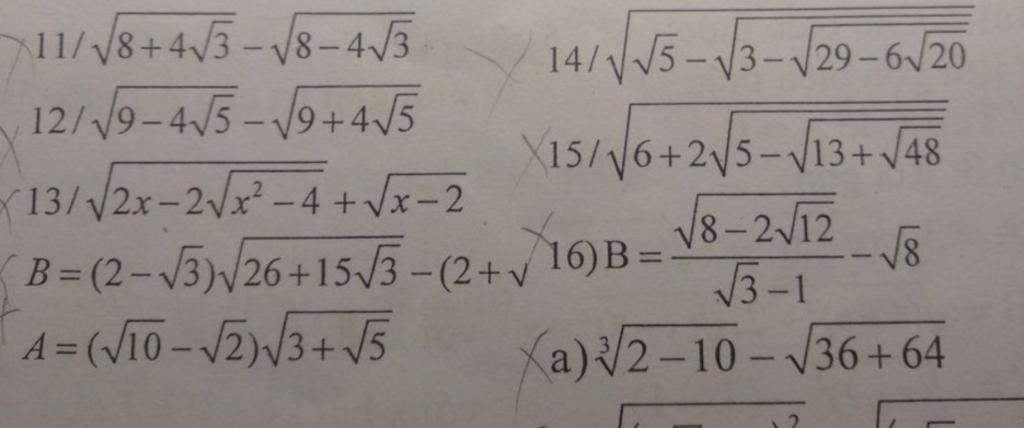 11/ √(8+4√3) − √(8−4√3)
12/ √(9−4√5) − √(9+4√5)
13/ √(2x−2√(x²−4)) + √(x−2)
B = (2−√3)√(26+15√3) − (2+√
A = (√10−√2)√(3+√5)
14/ √(√5−√(3−√(29−6√20)))
15/ √(6+2√(5−√(13+√48)))
16) B = √(8−2√12)/(√3−1) − √8
a) ∛(2−10) − √(36+64)